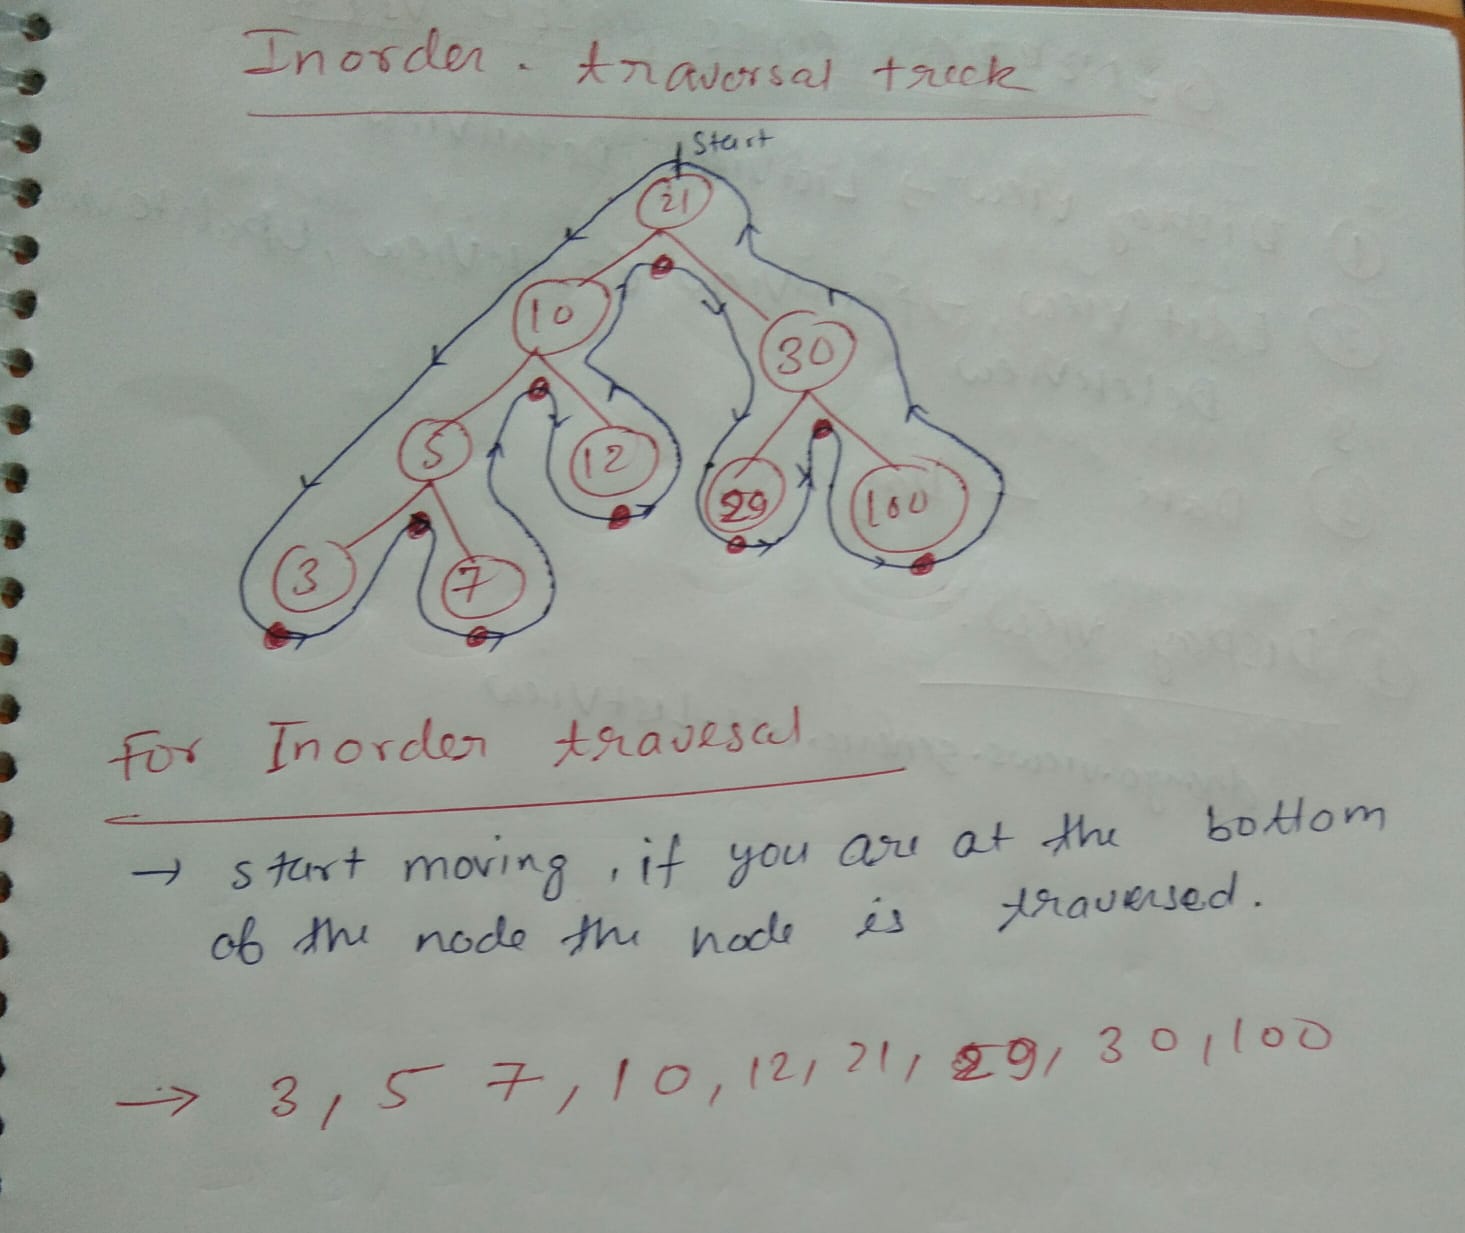 Inorder. traversal treek
Start
21
10
30
5
12
29
100
3
7
For Inorder travesal
→ start moving, if you are at the bottom
of the node the node is traversed.
→ 3, 5 7, 10, 12, 21, 29, 30, 100